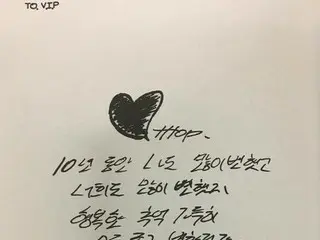 TO. VIP
TTTOP.
10년 동안 나도 많이 변했고
너희도 많이 변했지
행복한 추억 가득히